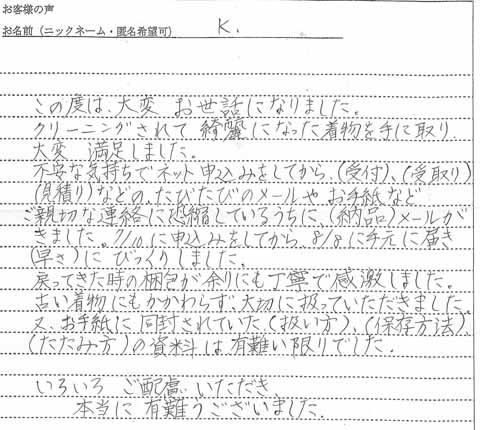 お客様の声
お名前（ニックネーム・匿名希望可） K.
この度は、大変 お世話になりました。
クリーニングされて 綺麗になった着物を手に取り
大変 満足しました。
不安な気持ちでネット申込みをしてから、(受付)、(受取り)
(見積り)などの、たびたびのメールや お手紙など
ご親切な連絡に恐縮しているうちに、(納品)メールが
きました。7/10に申込みをしてから、8/8に手元に届き
(早さ)に びっくりしました。
戻ってきた時の梱包が余りにも丁寧で感激しました。
古い着物にもかかわらず、大切に扱っていただきました。
又、お手紙に同封されていた(扱い方)、(保存方法)、
(たたみ方)の資料は有難い限りでした。
いろいろ ご配慮 いただき
本当に 有難うございました。